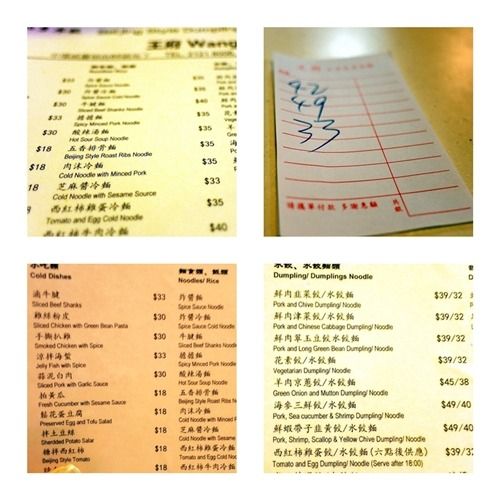 王府 Wang
炸醬麵
Spice Sauce Noodle
炸醬冷麵
Spice Sauce Cold Noodle
$30 牛腱麵 $40
Sliced Beef Shanks Noodle
$33 擔擔麵 $35
Spicy Minced Pork Noodle
$30 酸辣湯麵 $35
Hot Sour Soup Noodle
$18 五香排骨麵 $30
Beijing Style Roast Ribs Noodle
$18 肉沫冷麵 $35
Cold Noodle with Minced Pork
$18 芝麻醬冷麵 $33
Cold Noodle with Sesame Source
$18 西紅柿雞蛋冷麵 $35
Tomato and Egg Cold Noodle
西紅柿牛肉冷麵 $40
42
49
33
請攜單付款 多謝惠顧
共銀
Cold Dishes
麵食類、飯類
Noodles/ Rice
滷牛腱 $33 炸醬麵
Sliced Beef Shanks Spice Sauce Noodle
雞絲粉皮 $30 炸醬冷麵
Sliced Chicken with Green Bean Pasta Spice Sauce Cold Noodle
手撕扒雞 $30 牛腱麵
Smoked Chicken with Spice Sliced Beef Shanks Noodle
涼拌海蜇 $33 擔擔麵
Jelly Fish with Spice Spicy Minced Pork Noodle
蒜泥白肉 $30 酸辣湯麵
Sliced Pork with Garlic Sauce Hot Sour Soup Noodle
拍黃瓜 $18 五香排骨麵
Fresh Cucumber with Sesame Sauce Beijing Style Roast Ribs N
松花蛋豆腐 $18 肉沫冷麵
Preserved Egg and Tofu Salad Cold Noodle with
拌土豆絲 $18 芝麻醬冷麵
Sherdded Potato Salad Cold Noodle with
糖拌西紅柿 $18 西紅柿雞蛋
Beijing Style Tomato Tomato and Egg
西紅柿牛肉冷
水餃、水餃麵類
Dumpling/ Dumplings Noodle
鮮肉韭菜餃/水餃麵 $39/32
Pork and Chive Dumpling/ Noodle
鮮肉津菜餃/水餃麵 $39/32
Pork and Chinese Cabbage Dumpling/ Noodle
鮮肉翠玉豆餃/水餃麵 $39/32
Pork and Long Green Bean Dumpling/ Noodle
花素餃/水餃麵 $39/32
Vegetarian Dumpling/ Noodle
羊肉京蔥餃/水餃麵 $45/38
Green Onion and Mutton Dumpling/ Noodle
海參三鮮餃/水餃麵 $49/40
Pork, Sea cucumber & Shrimp Dumpling/ Noodle
鮮蝦帶子韭黃餃/水餃麵 $49/40
Pork, Shrimp, Scallop & Yellow Chive Dumpling/ Noodle
西紅柿雞蛋餃/水餃麵 (六點後供應) $39/3
Tomato and Egg Dumpling/ Noodle (Serve after 18:00)